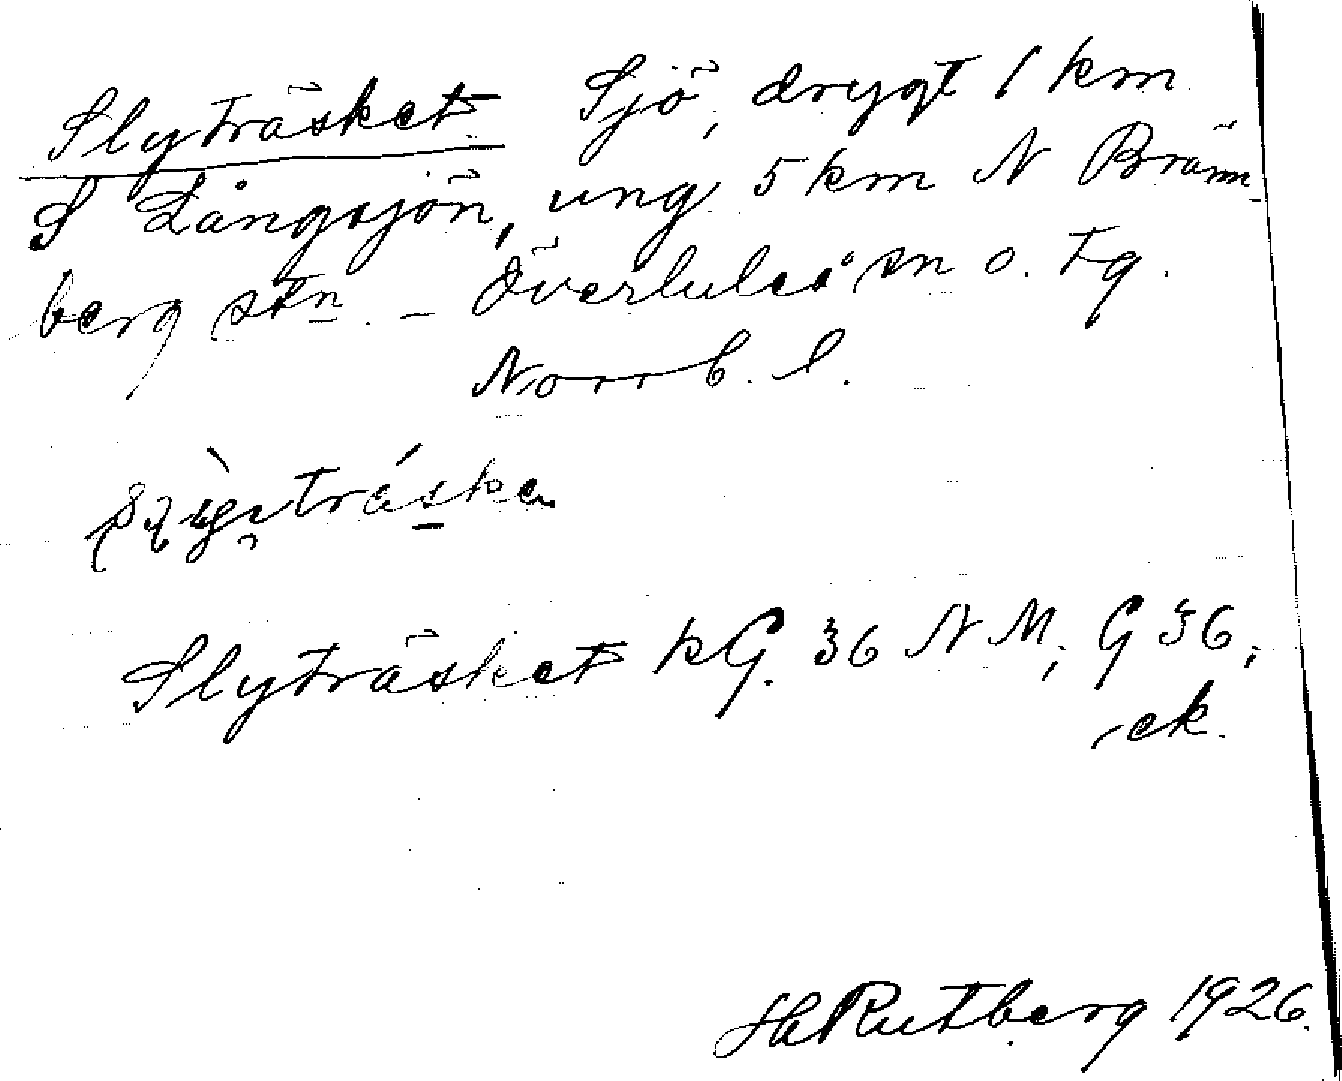 Slyträsket Sjö, drygt 1 km
S Långsjön, ung 5 km N Bränn-
berg stn. – Överluleå sn o. tg.
Norrb. l.
Slyträsket kG. 36 NM; G 36;
ek.
HRutberg 1926.